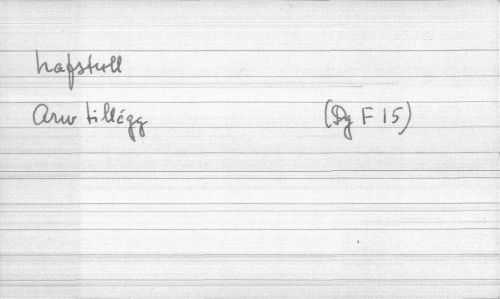 hafstull
Arw tillégg (Dg F 15)